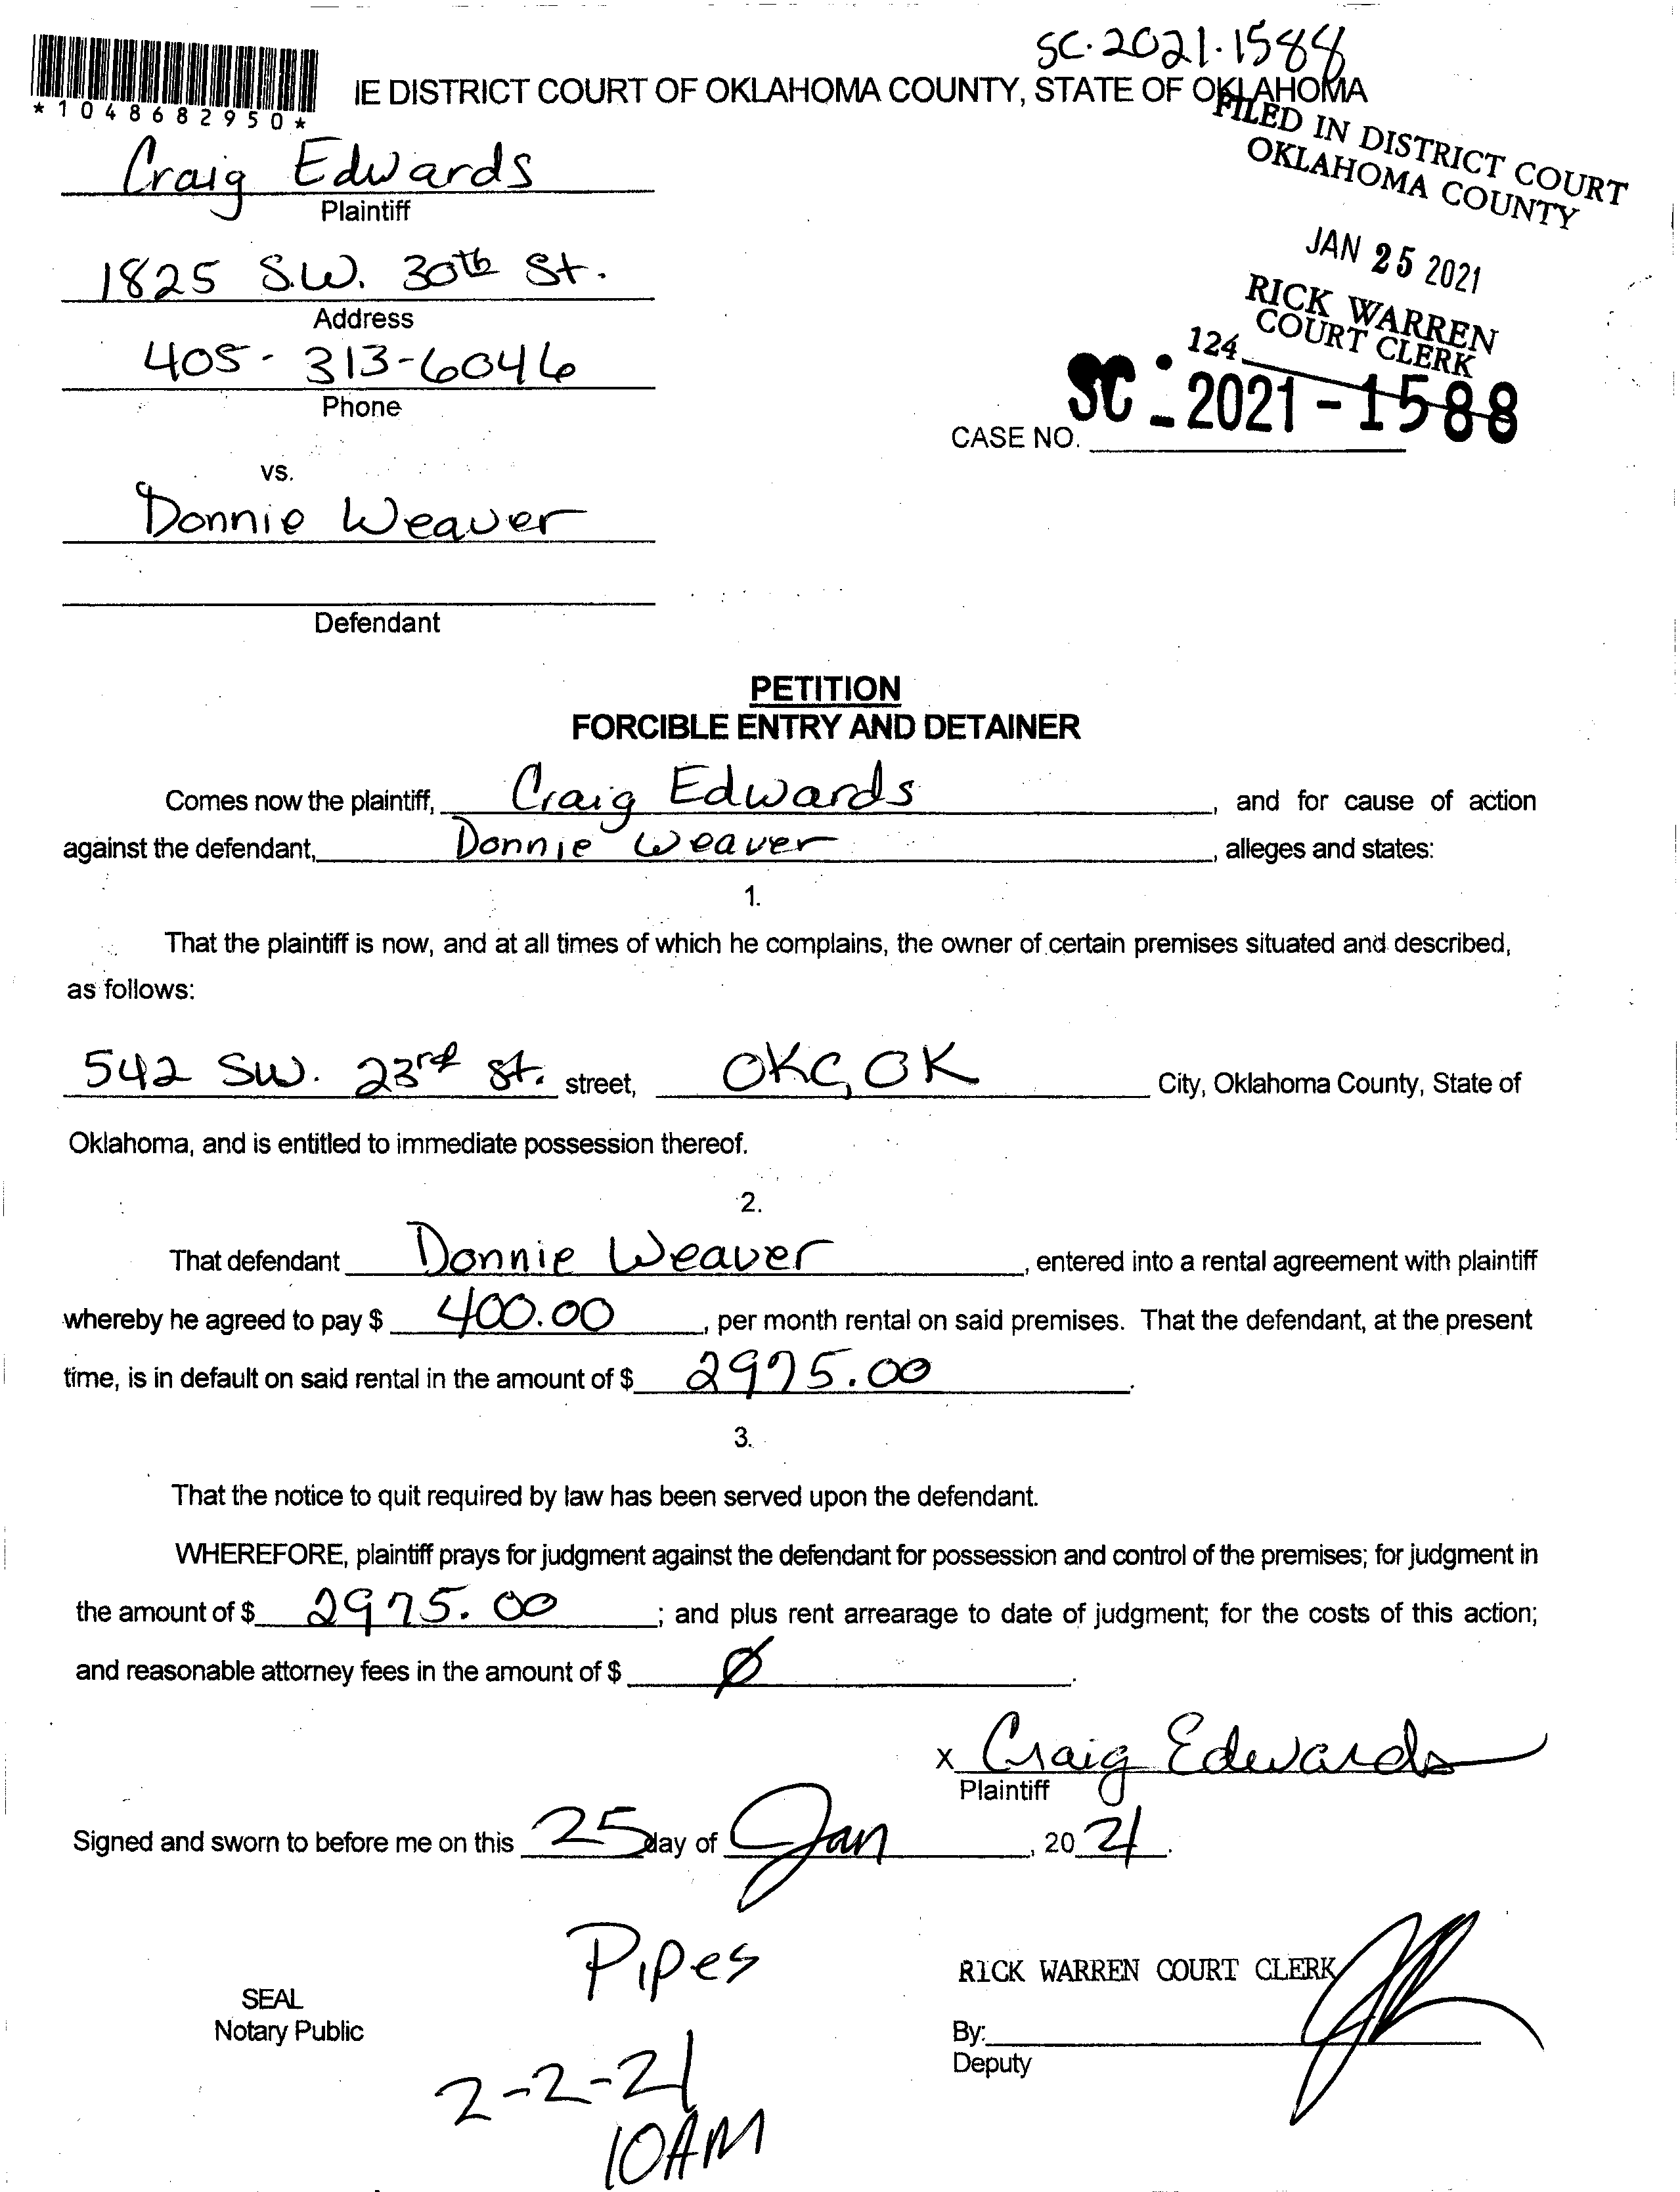 SC-2021-1588
IE DISTRICT COURT OF OKLAHOMA COUNTY, STATE OF OKLAHOMA
*1048682950*
FILED IN DISTRICT COURT
OKLAHOMA COUNTY
Craig Edwards
Plaintiff
JAN 25 2021
1825 S.W. 30th St.
Address
RICK WARREN
COURT CLERK
124
405-313-6046
Phone
CASE NO. SC-2021-1588
vs.
Donnie Weaver
Defendant
PETITION
FORCIBLE ENTRY AND DETAINER
Comes now the plaintiff, Craig Edwards, and for cause of action
against the defendant, Donnie Weaver, alleges and states:
1.
That the plaintiff is now, and at all times of which he complains, the owner of certain premises situated and described,
as follows:
542 SW. 23rd St. street, OKC, OK City, Oklahoma County, State of
Oklahoma, and is entitled to immediate possession thereof.
2.
That defendant Donnie Weaver, entered into a rental agreement with plaintiff
whereby he agreed to pay $ 400.00, per month rental on said premises. That the defendant, at the present
time, is in default on said rental in the amount of $ 2975.00.
3.
That the notice to quit required by law has been served upon the defendant.
WHEREFORE, plaintiff prays for judgment against the defendant for possession and control of the premises; for judgment in
the amount of $ 2975.00; and plus rent arrearage to date of judgment; for the costs of this action;
and reasonable attorney fees in the amount of $ Ø.
X Craig Edwards
Plaintiff
Signed and sworn to before me on this 25 day of Jan, 2021.
Pipes
RICK WARREN COURT CLERK
SEAL
Notary Public
By:
Deputy
2-2-21
10AM